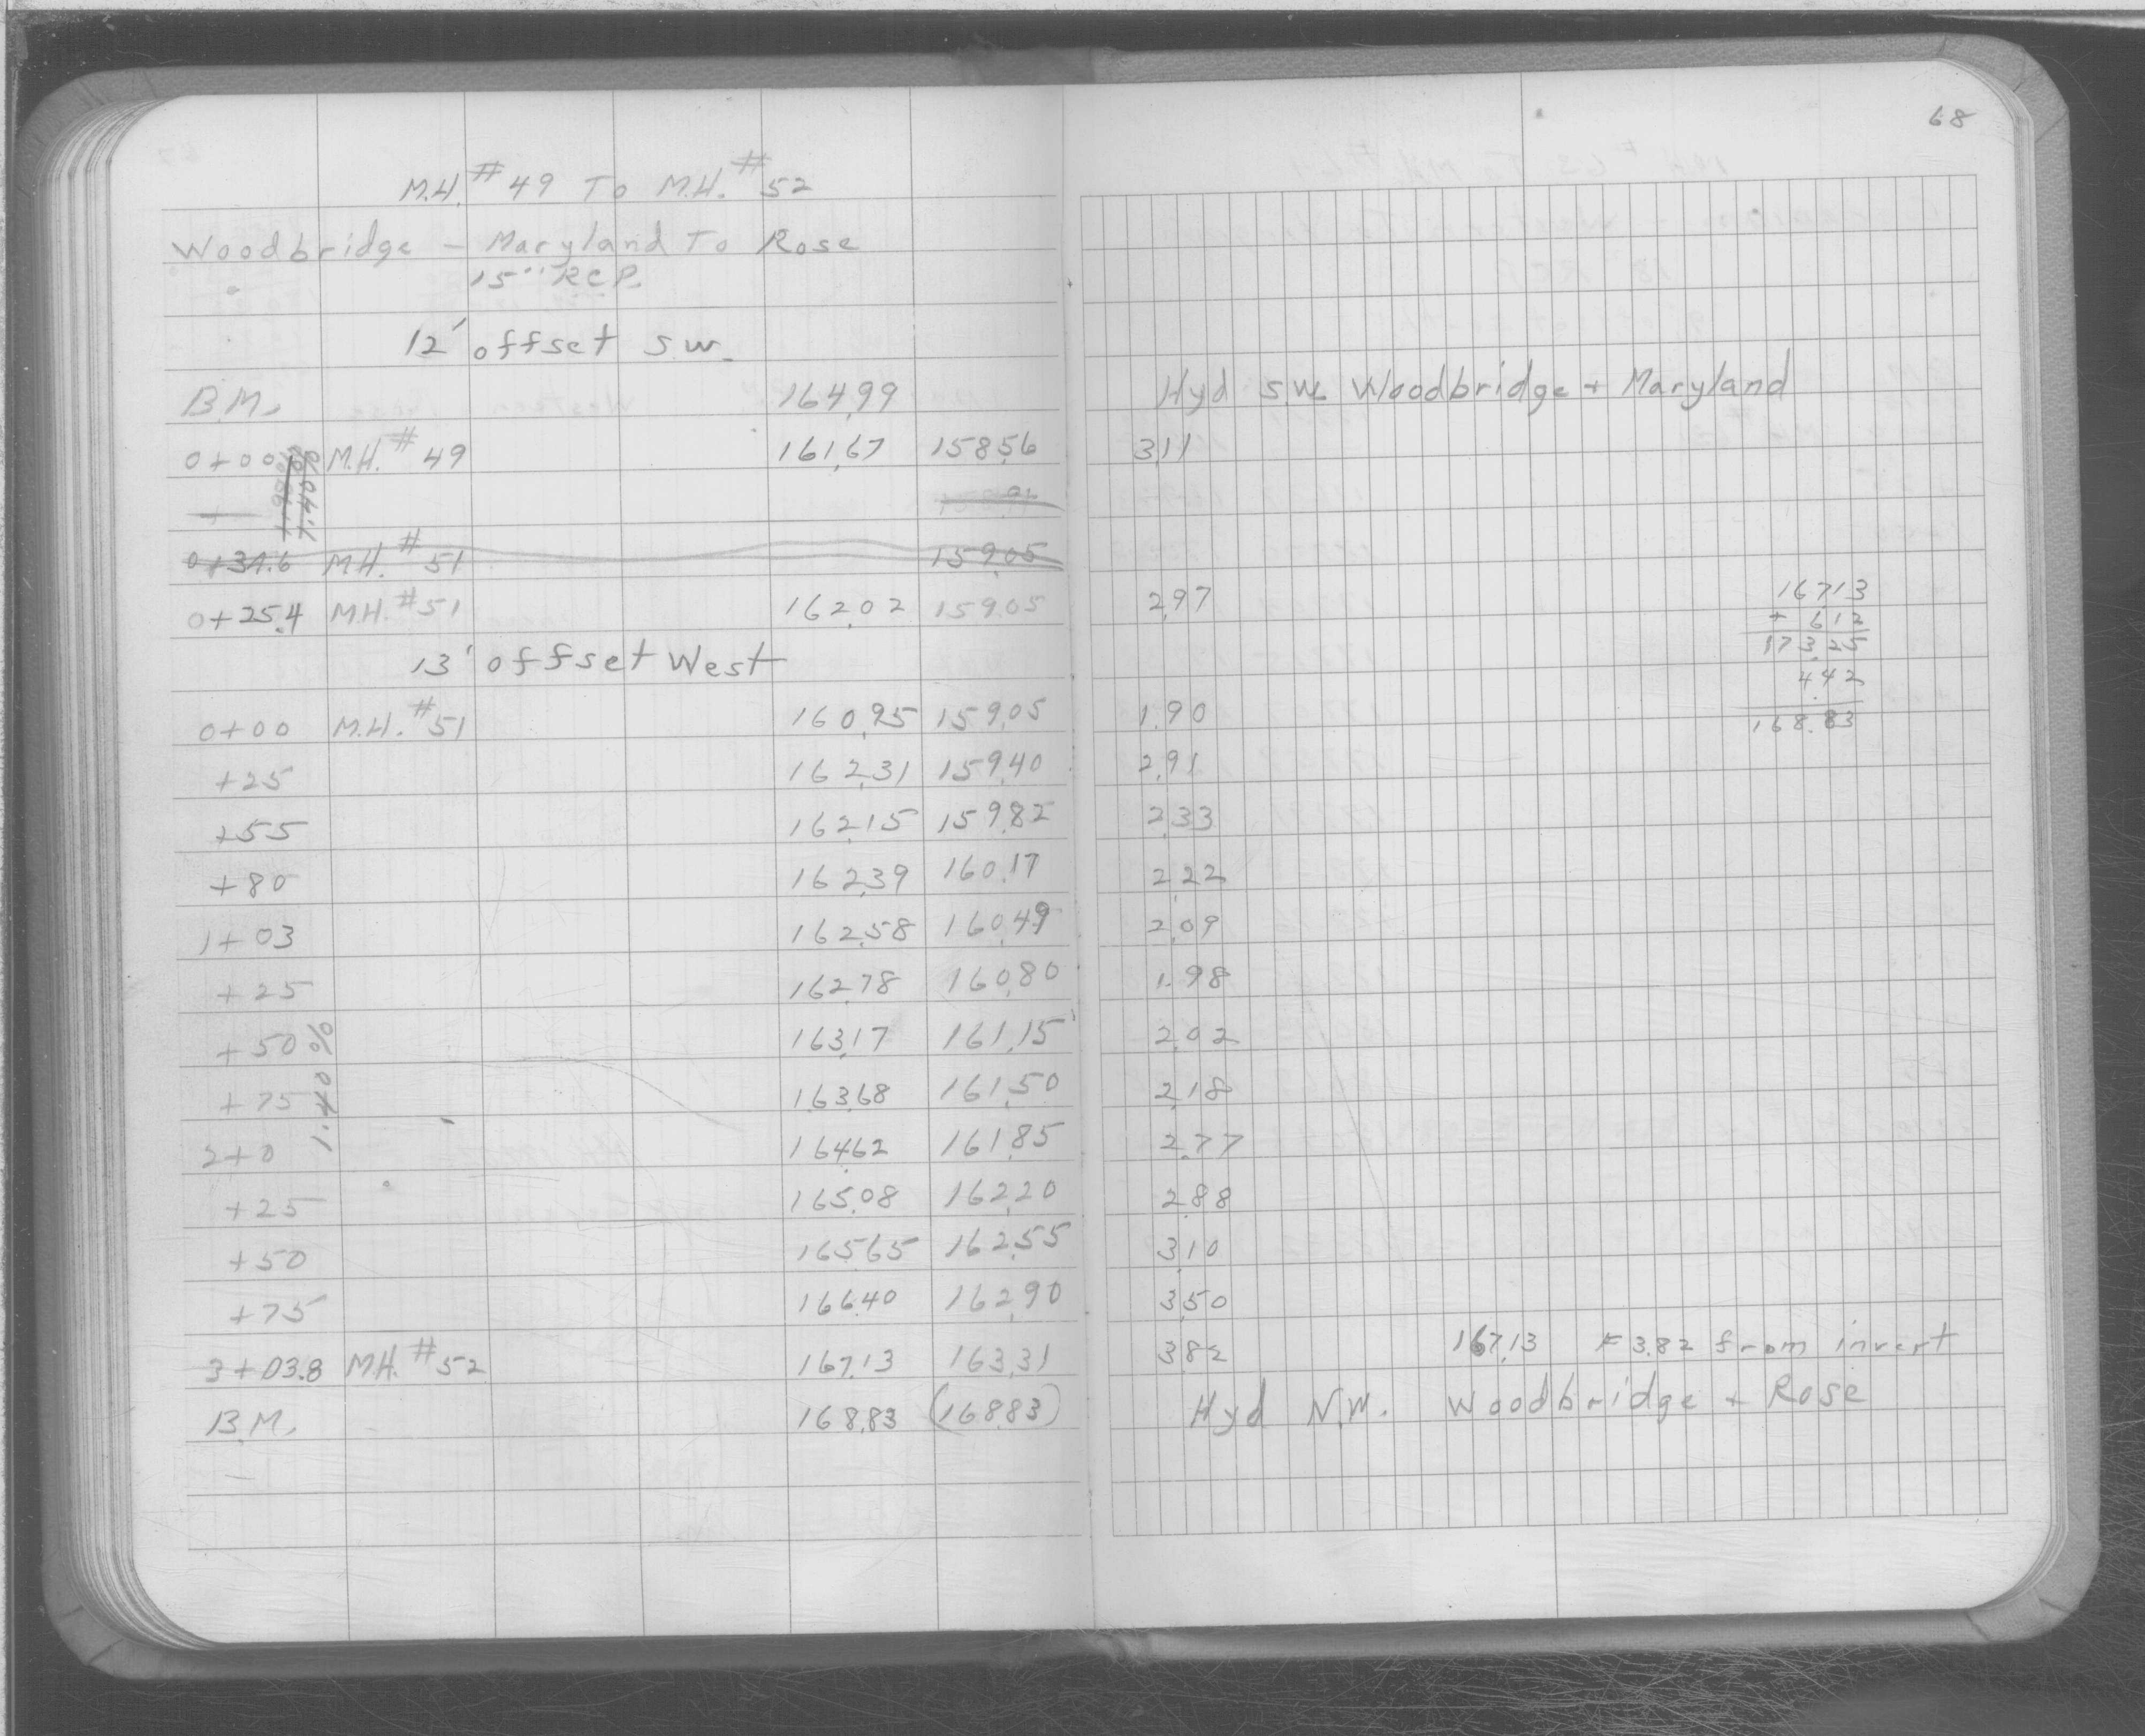 68
M.H. # 49 To M.H. # 52
Woodbridge - Maryland To Rose
15" RCP.
12' offset S.W.
B.M. 164.99 Hyd S.W. Woodbridge + Maryland
0+00 M.H. # 49 161.67 158.56 3.11
0+31.6 M.H. # 51 159.05
0+25.4 M.H. # 51 162.02 159.05 2.97
13' offset West
0+00 M.H. # 51 160.95 159.05 1.90
+25 162.31 159.40 2.91
+55 162.15 159.82 2.33
+80 162.39 160.17 2.22
1+03 162.58 160.49 2.09
+25 162.78 160.80 1.98
+50 163.17 161.15 2.02
+75 163.68 161.50 2.18
2+0 164.62 161.85 2.77
+25 165.08 162.20 2.88
+50 165.65 162.55 3.10
+75 166.40 162.90 3.50
3+03.8 M.H. # 52 167.13 163.31 3.82 167.13 F 3.82 from invert
B.M. 168.83 (168.83) Hyd N.W. Woodbridge + Rose
1.40 %
167.13
+ 6.12
173.25
4.42
168.83